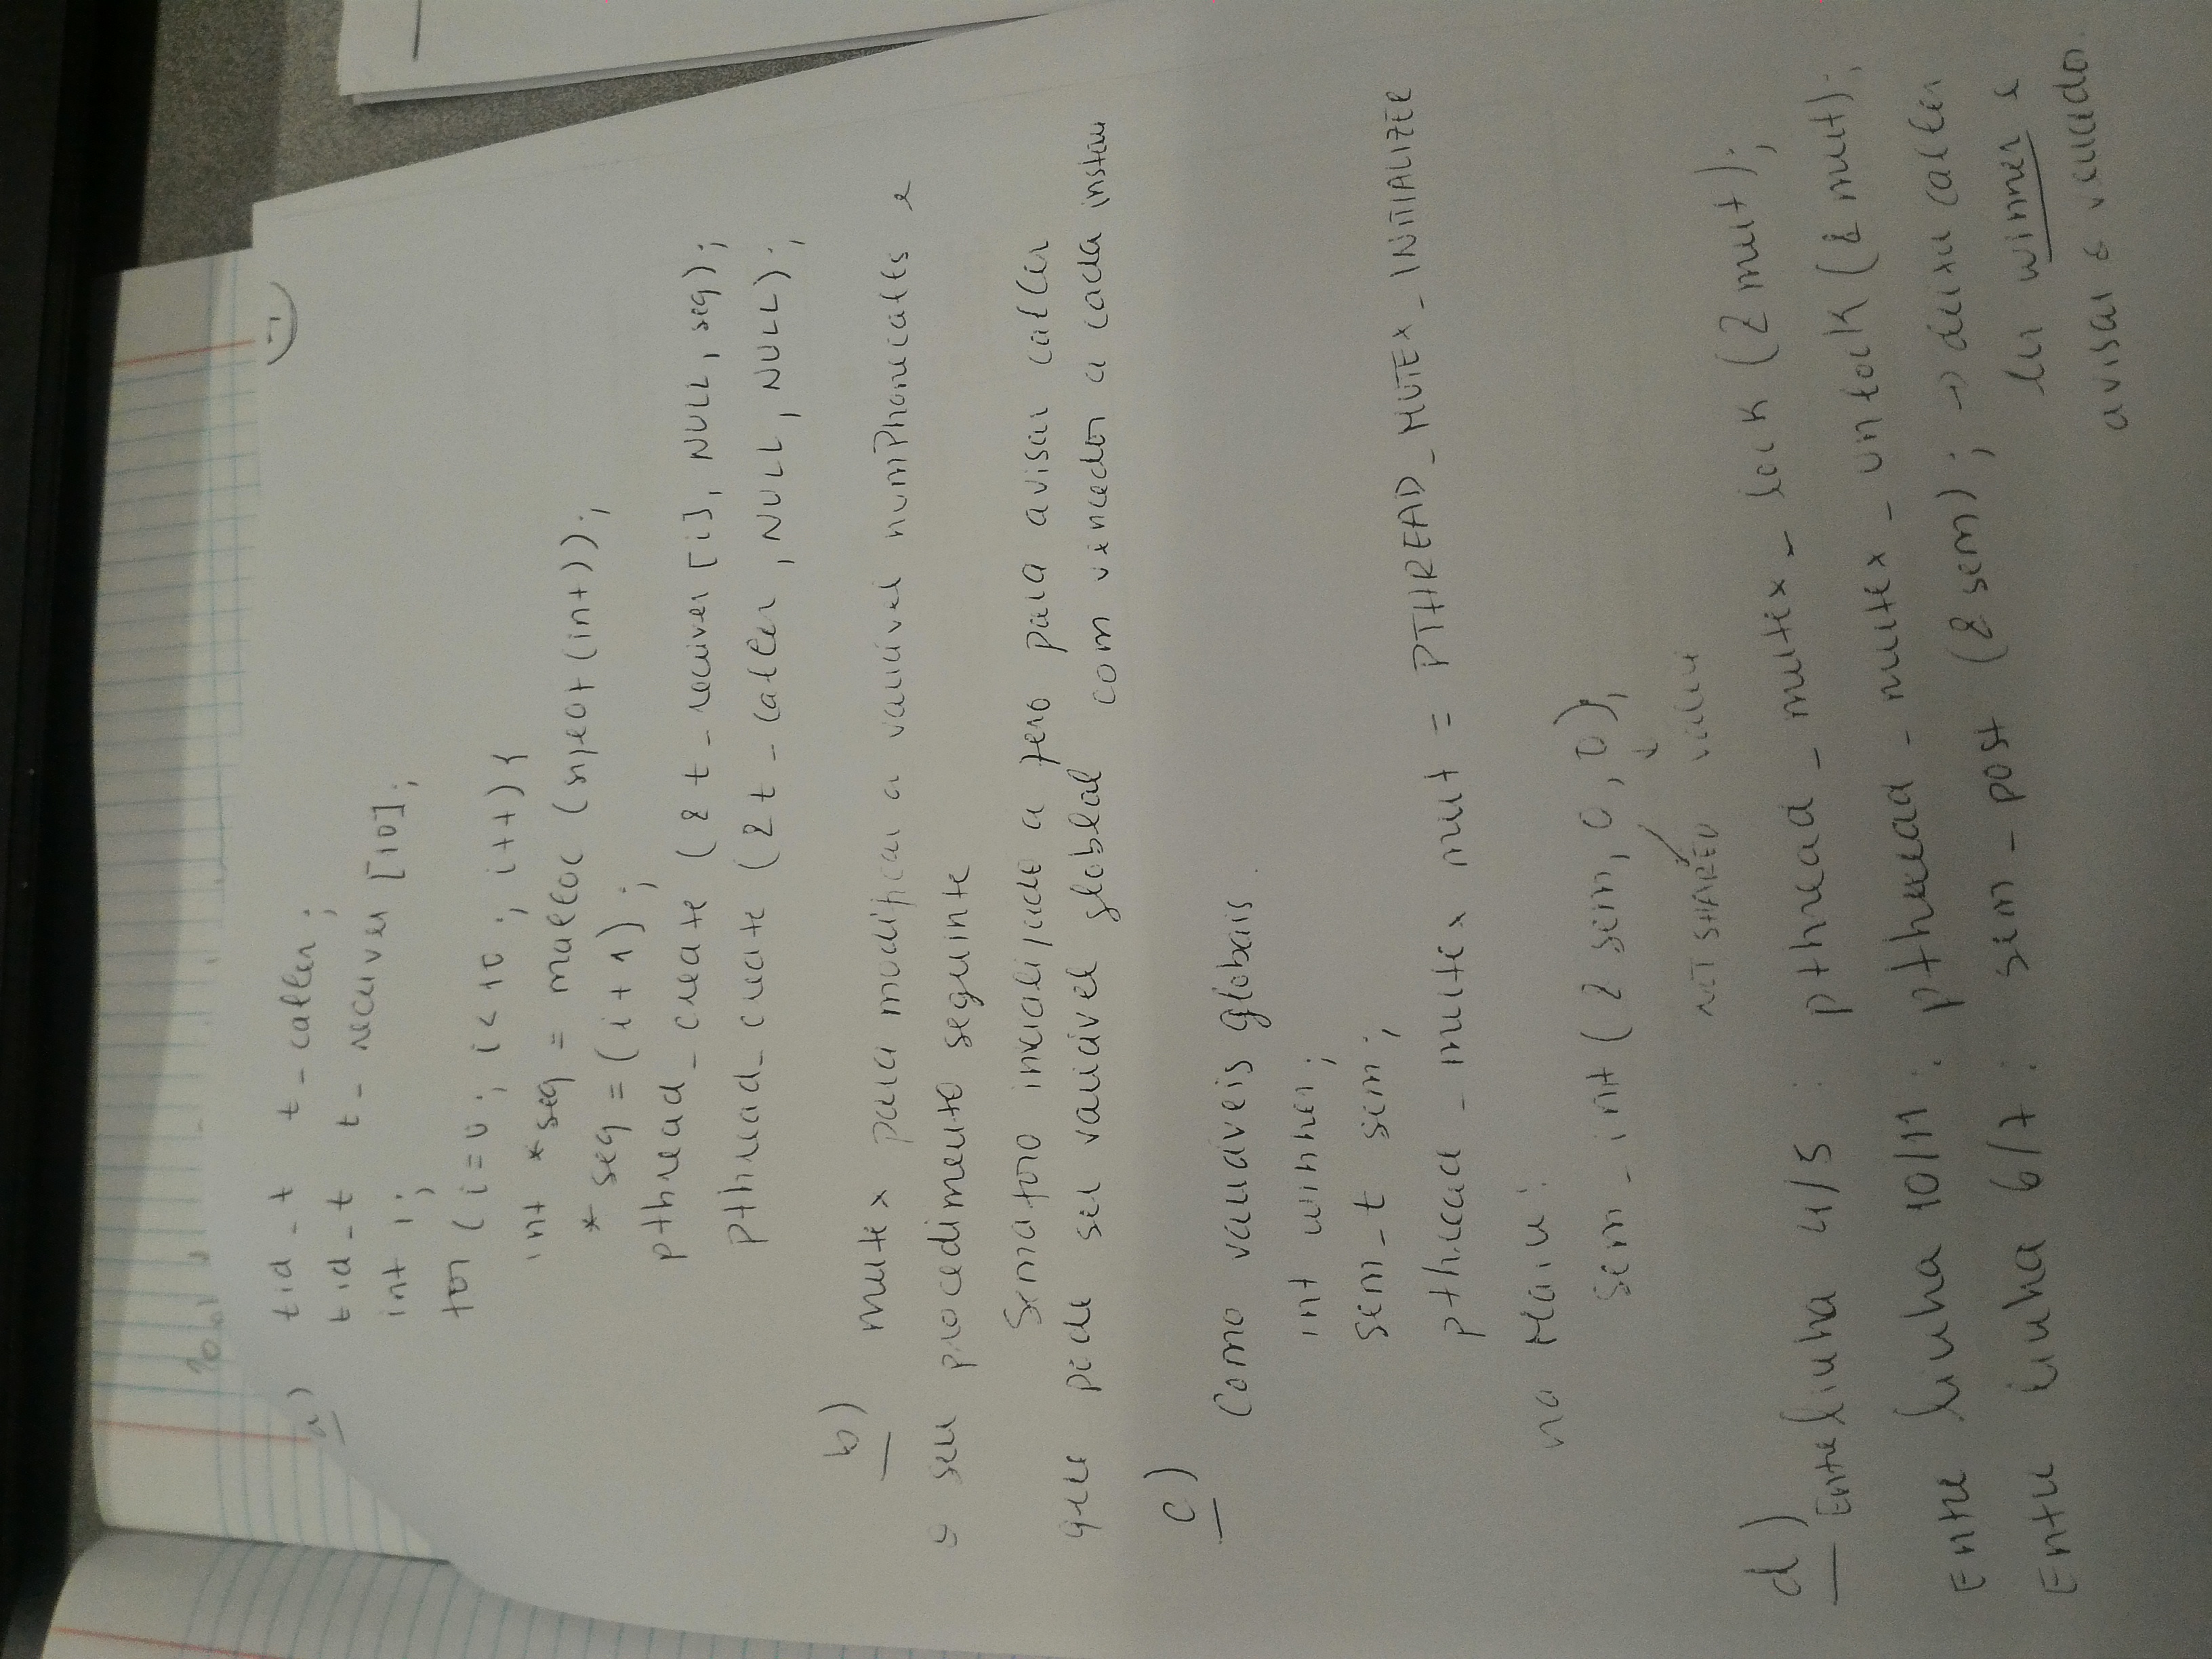 a) tid_t t_caller;
tid_t t_receiver [10];
int i;
for (i=0; i<10; i++) {
int *seq = malloc (sizeof(int));
*seq = (i+1);
pthread_create (&t_receiver [i], NULL, seq);
pthread_create (&t_caller, NULL, NULL);
b) mutex para modificar a variável numPhonecalls e
o seu procedimento seguinte
Semaforo inicializado a zero para avisar caller
que pode ser variável globlal com vencedor a cada instan
c)
Como variáveis globais.
int winner;
sem_t sem;
pthread_mutex mut = PTHREAD_MUTEX_INITIALIZER
na Main:
sem_int (& sem, 0, 0);
NOT SHARED value
d)
Entre linha 4/5 : pthread_mutex_lock (& mut);
Entre linha 10/11 : pthread_mutex_unlock (& mut);
Entre linha 6/7 : sem_post (& sem); → deixa caller
ler winner e
avisar o vencedor.